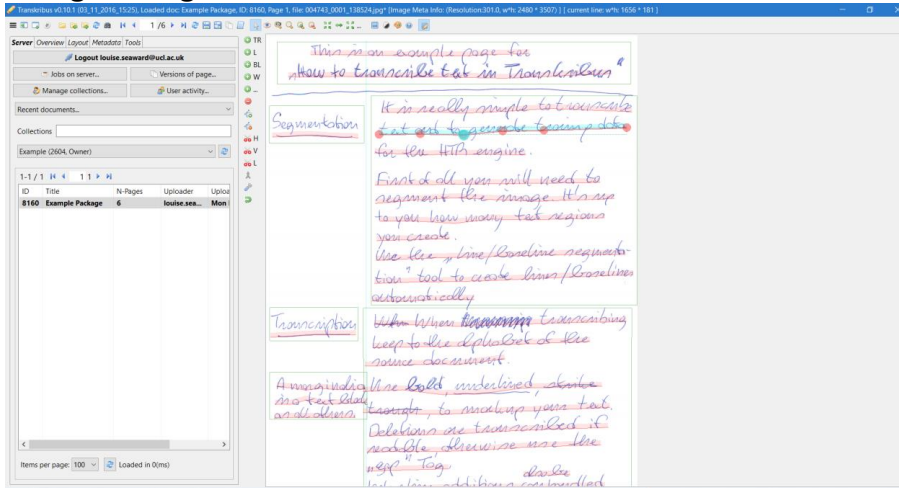 Transkribus v0.10.1 (03_11_2016_15:25), Loaded doc: Example Package, ID: 8160, Page 1, file: 004743_0001_138524.jpg* [Image Meta Info: (Resolution:301.0, w*h: 2480 * 3507) ] [ current line: w*h: 1656 * 181 ]
1 /6
Server Overview Layout Metadata Tools
Logout louise.seaward@ucl.ac.uk
Jobs on server... Versions of page...
Manage collections... User activity...
Recent documents...
Collections
Example (2604, Owner)
1-1 / 1 1 1
ID Title N-Pages Uploader Uploa
8160 Example Package 6 louise.sea... Mon
Items per page: 100 Loaded in 0(ms)
TR
L
BL
W
...
H
V
L
This is an example page for
"How to transcribe text in Transkribus"
Segmentation
It is really simple to transcribe
text and to provide training data
for the HTR engine.
First of all you will need to
segment the image. It's up
to you how many text regions
you create.
Use the "line/baseline segmenta-
tion" tool to create lines/baselines
automatically
Transcription
When When transcribing
keep to the alphabet of the
source document.
A marginalia
is a text
as all others.
Use bold, underlined,
through, to markup your text.
Deletions are transcribed if
readable otherwise use the
"gap" Tag
also be
additions